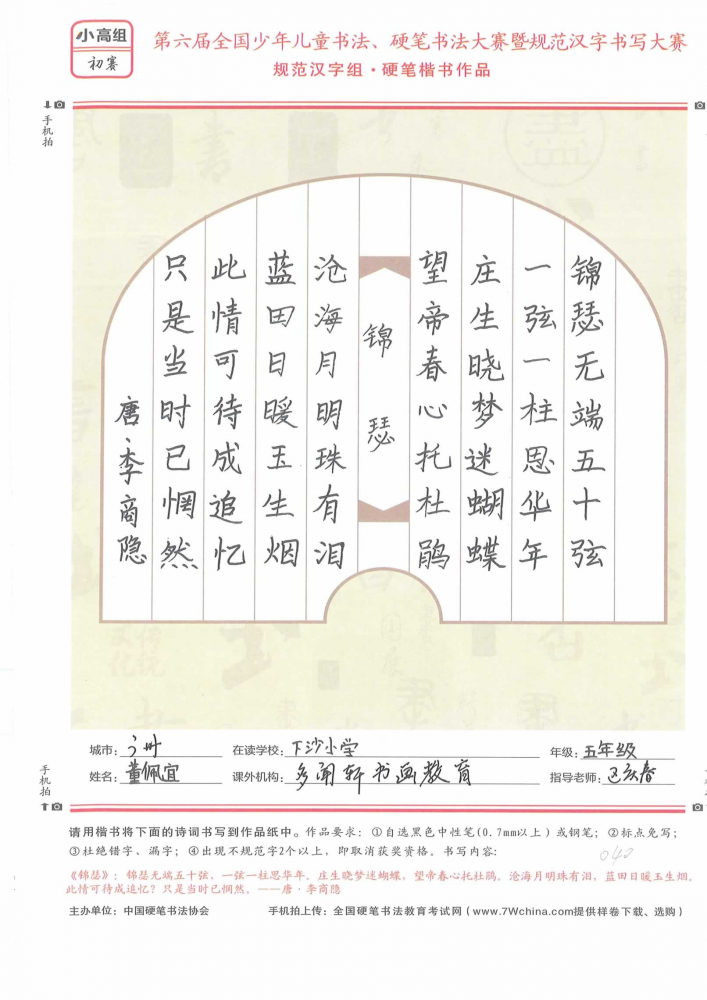 小高组
初赛
第六届全国少年儿童书法、硬笔书法大赛暨规范汉字书写大赛
规范汉字组·硬笔楷书作品
手机拍
锦瑟无端五十弦
一弦一柱思华年
庄生晓梦迷蝴蝶
望帝春心托杜鹃
锦瑟
沧海月明珠有泪
蓝田日暖玉生烟
此情可待成追忆
只是当时已惘然
唐、李商隐
城市：广州 在读学校：下沙小学 年级：五年级
姓名：董佩宜 课外机构：多闻轩书画教育 指导老师：
手机拍
请用楷书将下面的诗词书写到作品纸中。作品要求：①自选黑色中性笔(0.7mm以上)或钢笔；②标点免写；
③杜绝错字、漏字；④出现不规范字2个以上，即取消获奖资格。书写内容：
040
《锦瑟》：锦瑟无端五十弦，一弦一柱思华年。庄生晓梦迷蝴蝶，望帝春心托杜鹃。沧海月明珠有泪，蓝田日暖玉生烟。
此情可待成追忆？只是当时已惘然。——唐·李商隐
主办单位：中国硬笔书法协会 手机拍上传：全国硬笔书法教育考试网（www.7Wchina.com提供样卷下载、选购）